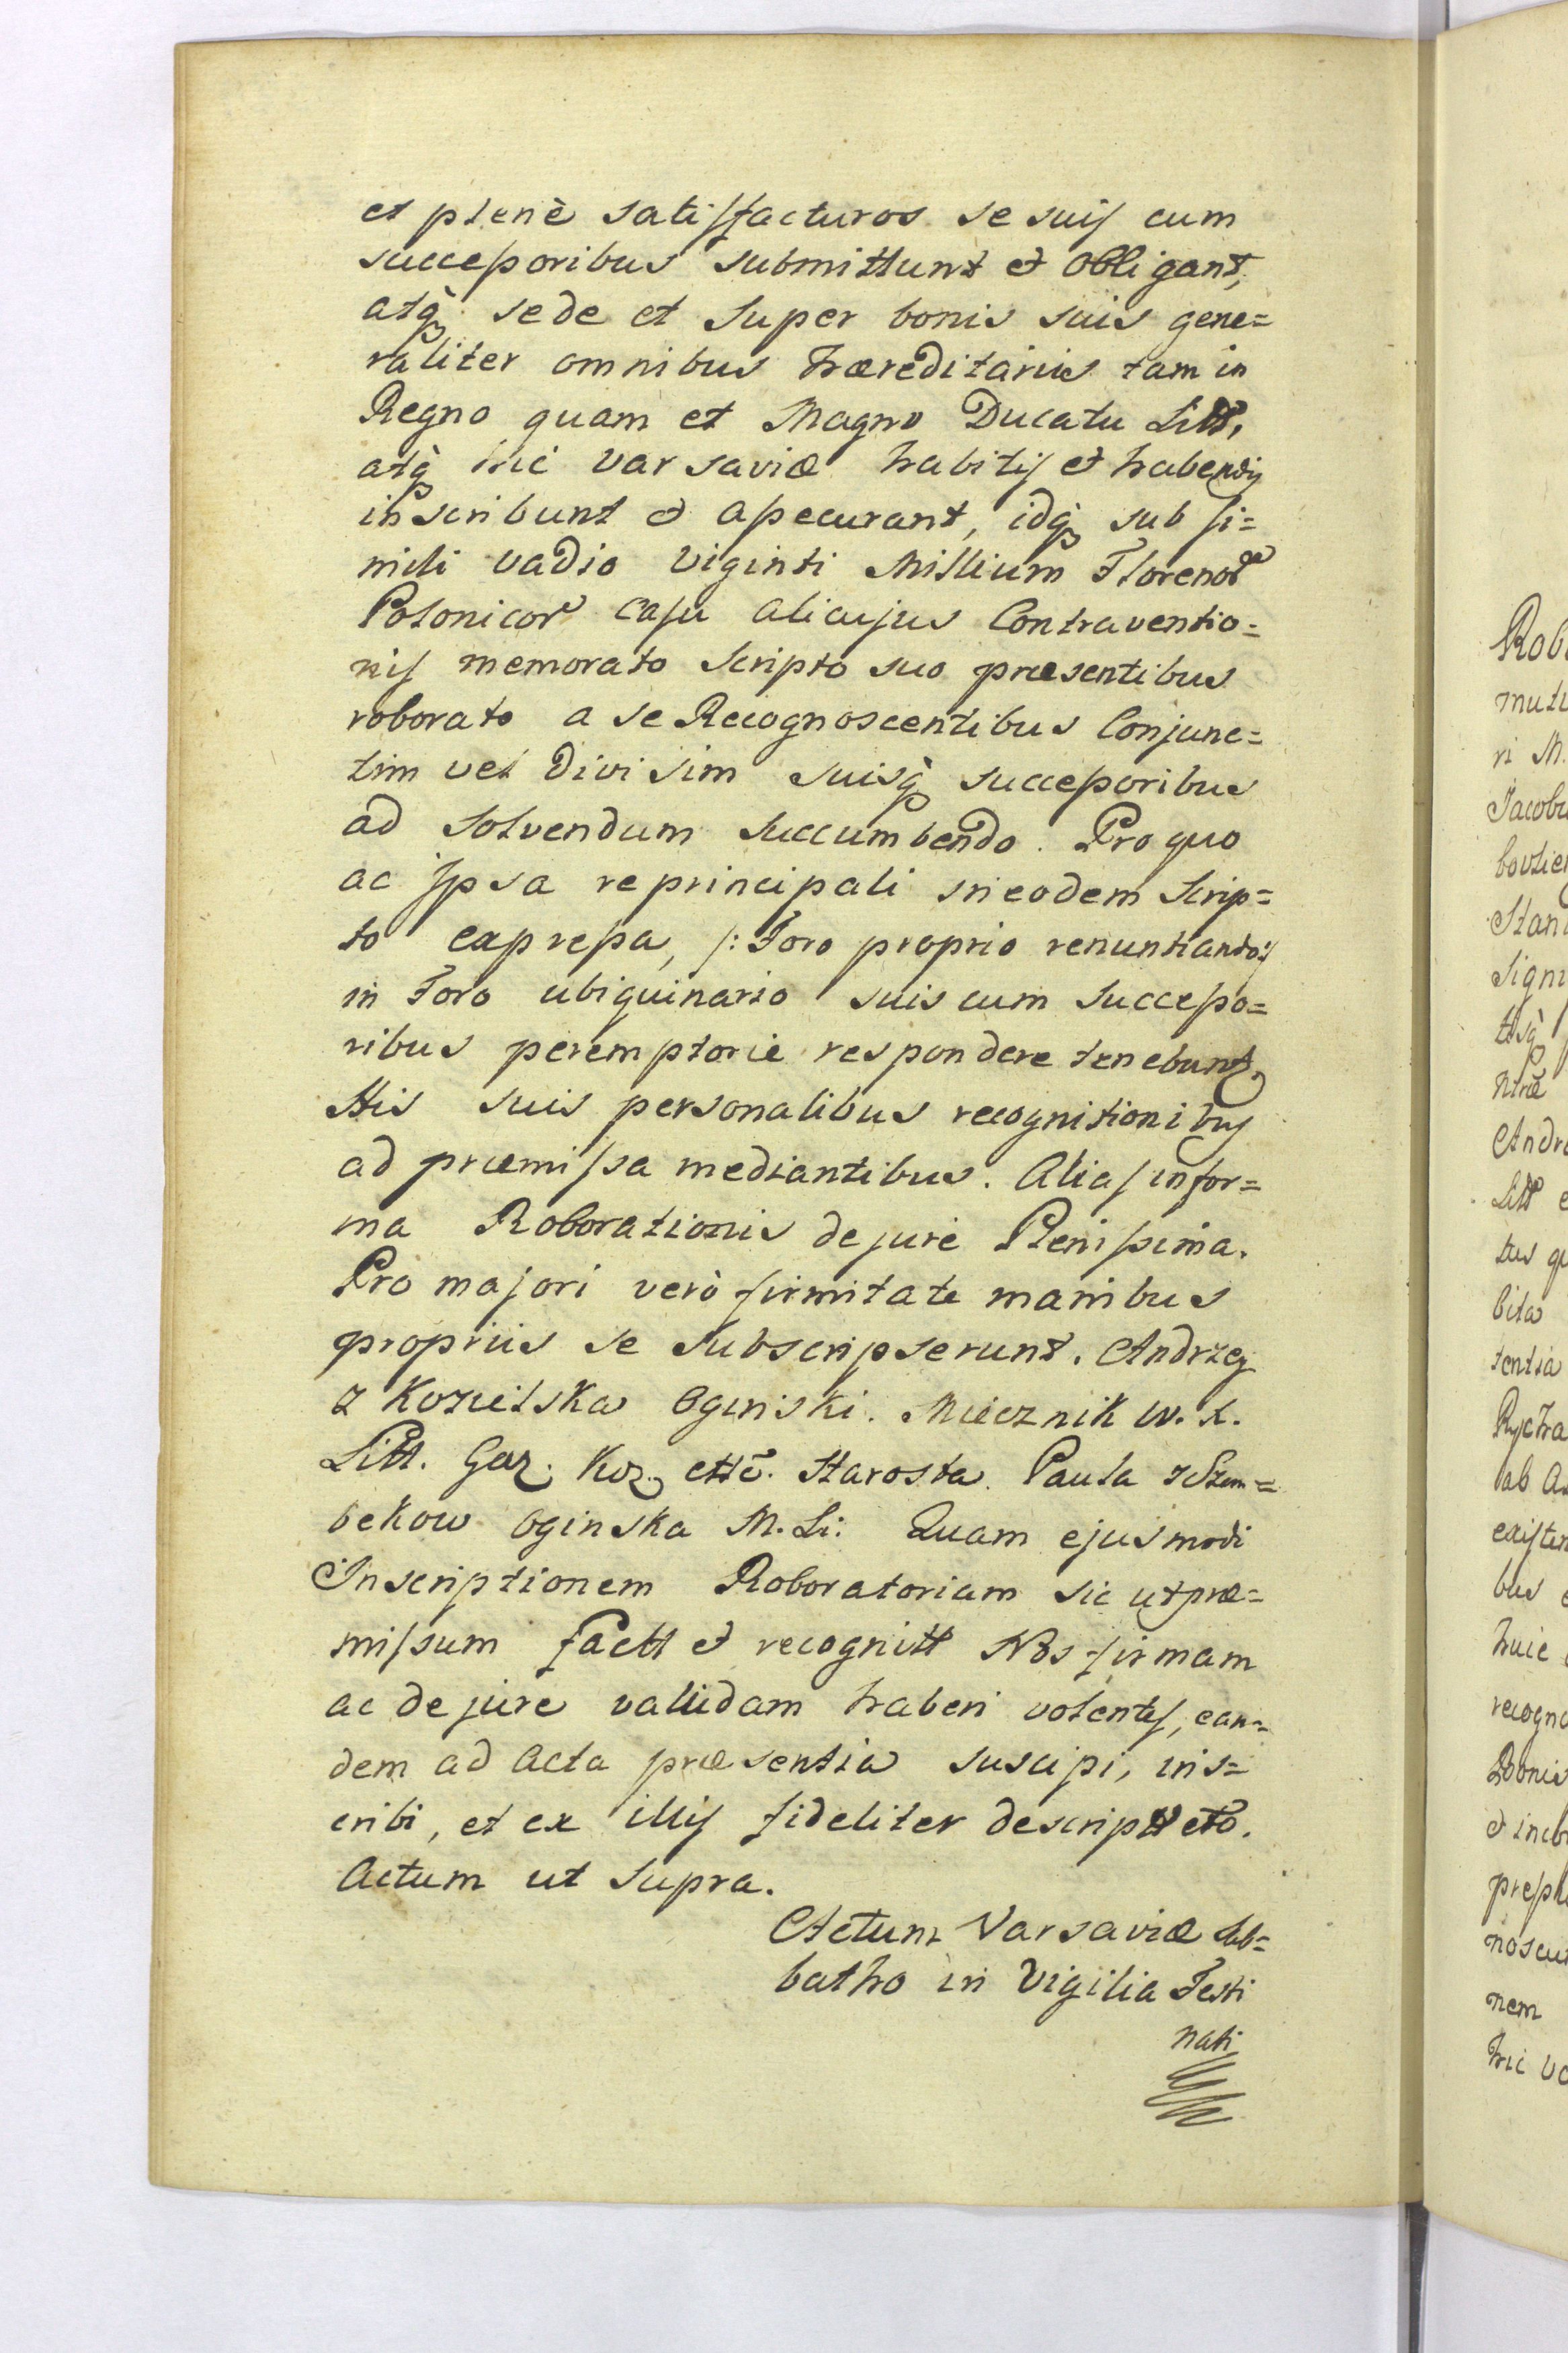 et plenè satisfacturos se suis cum
successoribus submittunt et obligant,
atq̀ʒ se de et super bonis suis gene=
raliter omnibus hæreditariis tam in
Regno quam et Magno Ducatu Litt,
atq̀ʒ hic Varsaviæ habitis et habendis
inscribunt et assecurant, idq̀ʒ sub si=
mili vadio viginti Millium Florenor
Polonicor casu alicujus Contraventio=
nis memorato Scripto suo præsentibus
roborato a se Recognoscentibus Conjunc=
tim vel divisim suisq̀ʒ successoribus
ad solvendum succumbendo. Pro quo
ac Jpsa re principali in eodem Scrip=
to expressa, /: Foro proprio renuntiando:/
in Foro ubiquinario suis cum successo=
ribus peremptorie respondere tenebunt.
His suis personalibus recognitionibus
ad præmissa mediantibus. Alias in for=
ma Roborationis de jure Plenissima.
Pro majori verò firmitate manibus
propriis se subscripserunt. Andrzey
z Kozielska Oginski. Miecznik W. X.
Litt. Goz. Koz. ettc̃. Starosta. Paula z Szem=
bekow Oginska M. Li: Quam ejusmodi
Inscriptionem Roboratoriam sic ut præ=
missum factt et recognitt Nos firmam
ac de jure validam haberi volentes, ean=
dem ad Acta præsentia suscipi, ins=
cribi, et ex illis fideliter descriptt etc̃.
Actum ut supra.
Actum Varsaviæ Sab=
batho in Vigilia Festi
Nati
Rob
muti
ri M.
Jacobu
Stani
Signi
tisq̀ʒ
Andre
Litt e
tus qu
bita
tentia
ab A
existen
bus
huic
recogno
Bonis
et
noscun
nem
hic Va